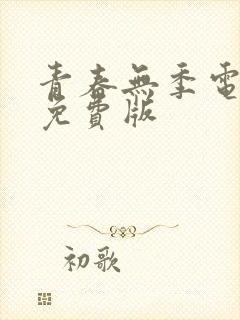 青春無季電
免費版
初歌